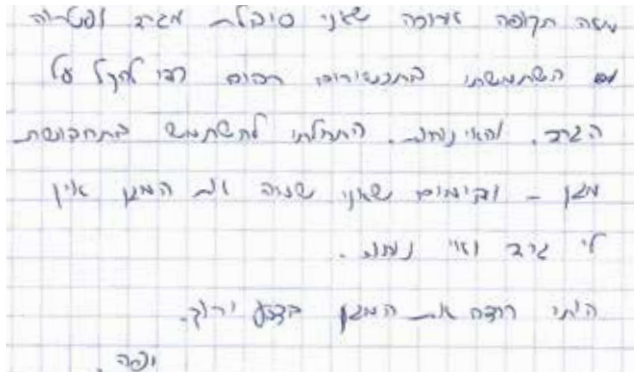 מזה תקופה ארוכה שאני סובלת מגרב ופטריה
השתמשתי בתכשירים רבים כדי להקל על
הגרב. והאי נוחות. התחלתי להשתמש בתחבושת
מגן - ובימים שאני שמה את המגן אין
לי גרב ואי נוחות.
הייתי רוצה את המגן בצבע ירוק.
יפה.